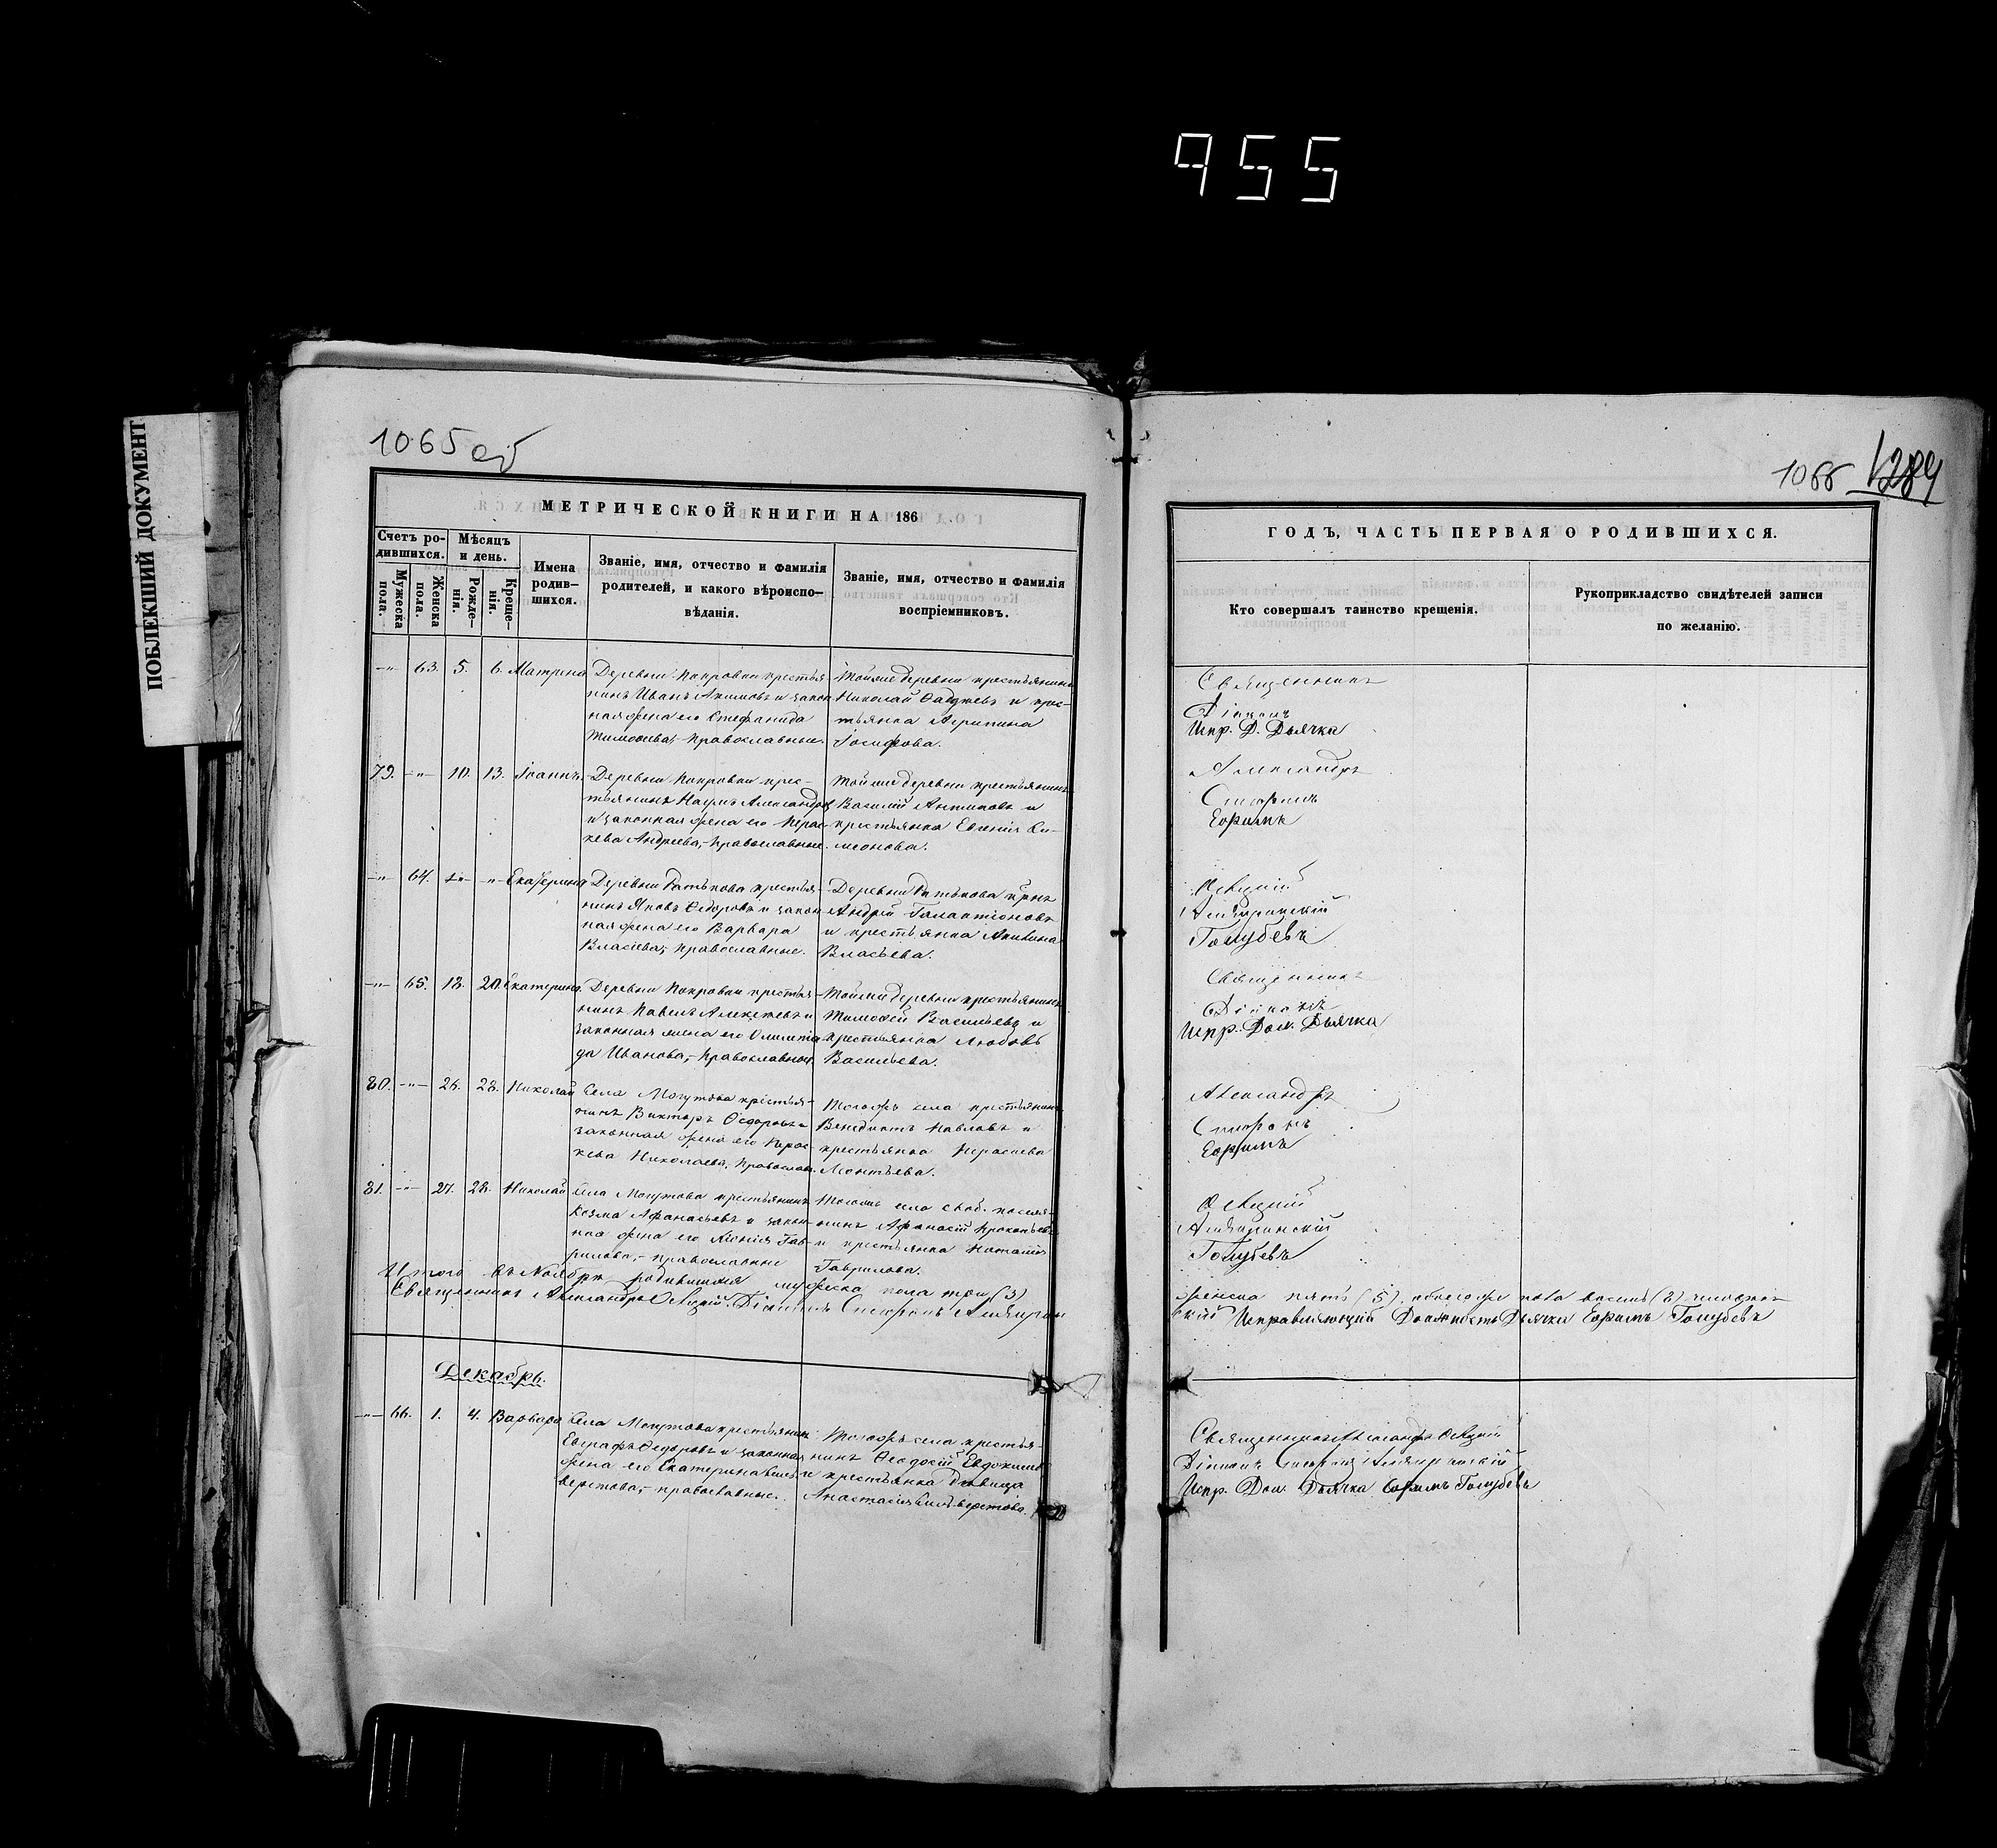 955
ПОБЛЕКШИЙ ДОКУМЕНТ
1065 об
МЕТРИЧЕСКОЙ КНИГИ НА 186
Счетъ ро-
дившихся.
Мужеска
пола.
Женска
пола.
Мѣсяцъ
и день.
Рожде-
нія.
Креще-
нія.
Имена
родив-
шихся.
Званіе, имя, отчество и фамилія
родителей, и какого вѣроиспо-
вѣданія.
Званіе, имя, отчество и фамилія
воспріемниковъ.
-"- 63. 5. 6. Матрена
Деревни Покровки крестья-
нинъ Иванъ Акимовъ и закон
ная жена его Стефанида
Тимофеева, православные.
Тойже деревни крестьянинъ
Николай и крес-
тьянка Агрипина
Іосифова.
79. -"- 10. 13. Іоаннъ.
Деревни Покровки крес-
тьянинъ Наумъ Александров
и законная жена его Парас-
кева Андреева, православные.
Тойже деревни крестьянинъ
Василий Антиповъ и
крестьянка Евгенія Си-
меонова.
-"- 64. -"- -"- Екатерина
Деревни крестья-
нинъ Яковъ Ѳедоровъ и закон
ная жена его Варвара
Власьева, православные.
Деревни
Андрей Галактіоновъ
и крестьянка Акилина
Власьева.
-"- 65. 18. 20. Екатерина.
Деревни Покровки крестья-
нинъ Павелъ Алексѣевъ и
законная жена его
Иванова, православные
Тойже деревни крестьянинъ
Тимофей Васильевъ и
крестьянка Любовь
Васильева.
80. -"- 26. 28. Николай
Села Могутова крестья-
нинъ Викторъ Ѳедоровъ и
законная жена его Парас-
кева Николаева, православ.
Тогожъ села крестьянинъ
Венедиктъ Павловъ и
крестьянка Параскева
Леонтьева.
81. -"- 27. 28. Николай
Села Могутова крестьянинъ
Козма Афанасьевъ и закон-
ная жена его Ксенія Гав-
рилова, православные
Тогожъ села своб. поселя-
нинъ Афанасій Прокопьевъ
и крестьянка Наталія
Гаврилова.
Итого въ Ноябрѣ родившихся мужеска пола три (3)
Священникъ Александръ Діаконъ
Декабрь.
-"- 66. 1. 4. Варвара
Села Могутова крестьянинъ
Евграфъ Ѳедоровъ и законная
жена его Екатерина
православные.
Тогожъ села крестья-
нинъ Ѳеодосій Евдокимовъ
и крестьянка дѣвица
Анастасія
1066 1289
ГОДЪ, ЧАСТЬ ПЕРВАЯ О РОДИВШИХСЯ.
Кто совершалъ таинство крещенія.
Рукоприкладство свидѣтелей записи
по желанію.
Священникъ
Діаконъ
Испр. Д. Дьячка
Александръ
Ефимъ
Голубевъ
Священникъ
Діаконъ
Испр. Дол. Дьячка
Александръ
Ефимъ
Голубевъ
женска пять (5), обоего пола восемь (8) человѣкъ
Исправляющій Должность Дьячка Ефимъ Голубевъ
Священникъ Александръ
Діаконъ
Испр. Дол. Дьячка Ефимъ Голубевъ